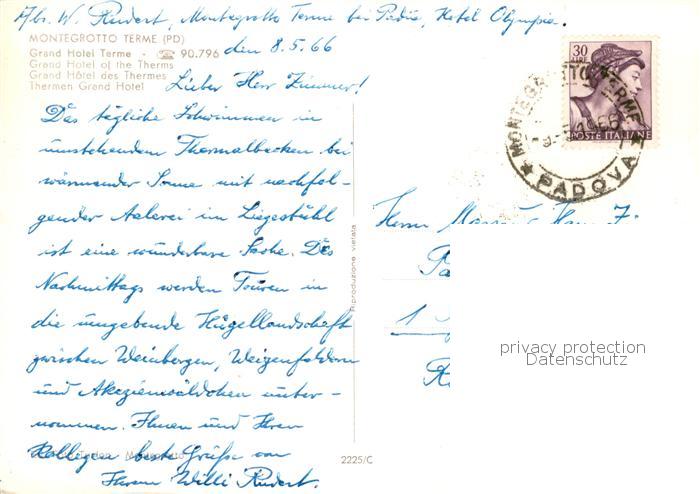 Abs. W. Rindert, Montegrotto Terme bei Padua, Hotel Olympia.
MONTEGROTTO TERME (PD)
Grand Hotel Terme - ☎ 90.796
den 8.5.66
Grand Hotel of the Therms
Grand Hôtel des Thermes
Thermen Grand Hotel
Lieber Herr Zimmer!
Das tägliche Schwimmen in
umstehendem Thermalbecken bei
wärmender Sonne mit nachfol-
gender Aalerei im Liegestühl
ist eine wunderbare Sache. Des
Nachmittags werden Touren in
die umgebende Hügellandschaft
zwischen Weinbergen, Weizenfeldern
und Akazienwäldchen unter-
nommen. Ihnen und Ihren
Kollegen beste Grüße von
Ihrem Willi Rindert.
30
LIRE
POSTE ITALIANE
MONTEGROTTO TERME
1966
PADOVA
Herrn
1
Riproduzione vietata
2225/C
privacy protection
Datenschutz